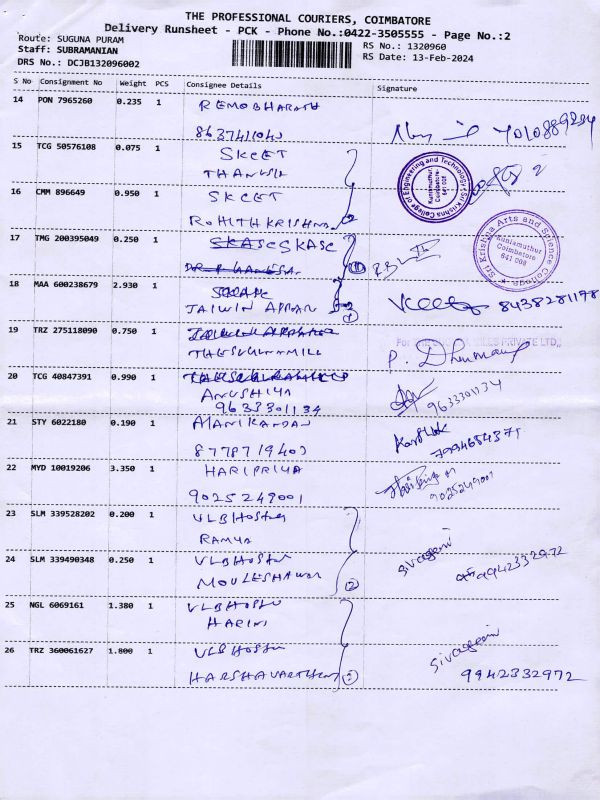 THE PROFESSIONAL COURIERS, COIMBATORE
Delivery Runsheet - PCK - Phone No.:0422-3505555 - Page No.:2
Route: SUGUNA PURAM
RS No.: 1320960
Staff: SUBRAMANIAN
RS Date: 13-Feb-2024
DRS No.: DCJB132096002
S No Consignment No Weight PCS Consignee Details Signature
14 PON 7965260 0.235 1 REMOBHARATH
8637411040
15 TCG 50576108 0.075 1 SKCET
THANUSH
16 CMM 896649 0.950 1 SKCET
ROHITH KRISHNA
Sri Krishna College of Engineering and Technology
Kuniamuthur
Coimbatore-
641 008
17 TMG 200395049 0.250 1 SKASC
Sri Krishna Arts and Science College
Kuniamuthur
Coimbatore
641 008
18 MAA 600238679 2.930 1
JAIWIN APPAN 8438281198
19 TRZ 275118090 0.750 1
P.
20 TCG 40847391 0.990 1
ANUSHIYA
9633301134 9633301134
21 STY 6022180 0.190 1 MANIKANDAN
7994654371
22 MYD 10019206 3.350 1 HARIPRIYA
9025249001 9025249001
23 SLM 339528202 0.200 1 VLB Hostel
RAMYA
24 SLM 339490348 0.250 1 VLB Hostel
9942332972
25 NGL 6069161 1.380 1 VLB Hostel
HARINI
26 TRZ 360061627 1.800 1 VLB Hostel
HARSHAVARTHEN 9942332972